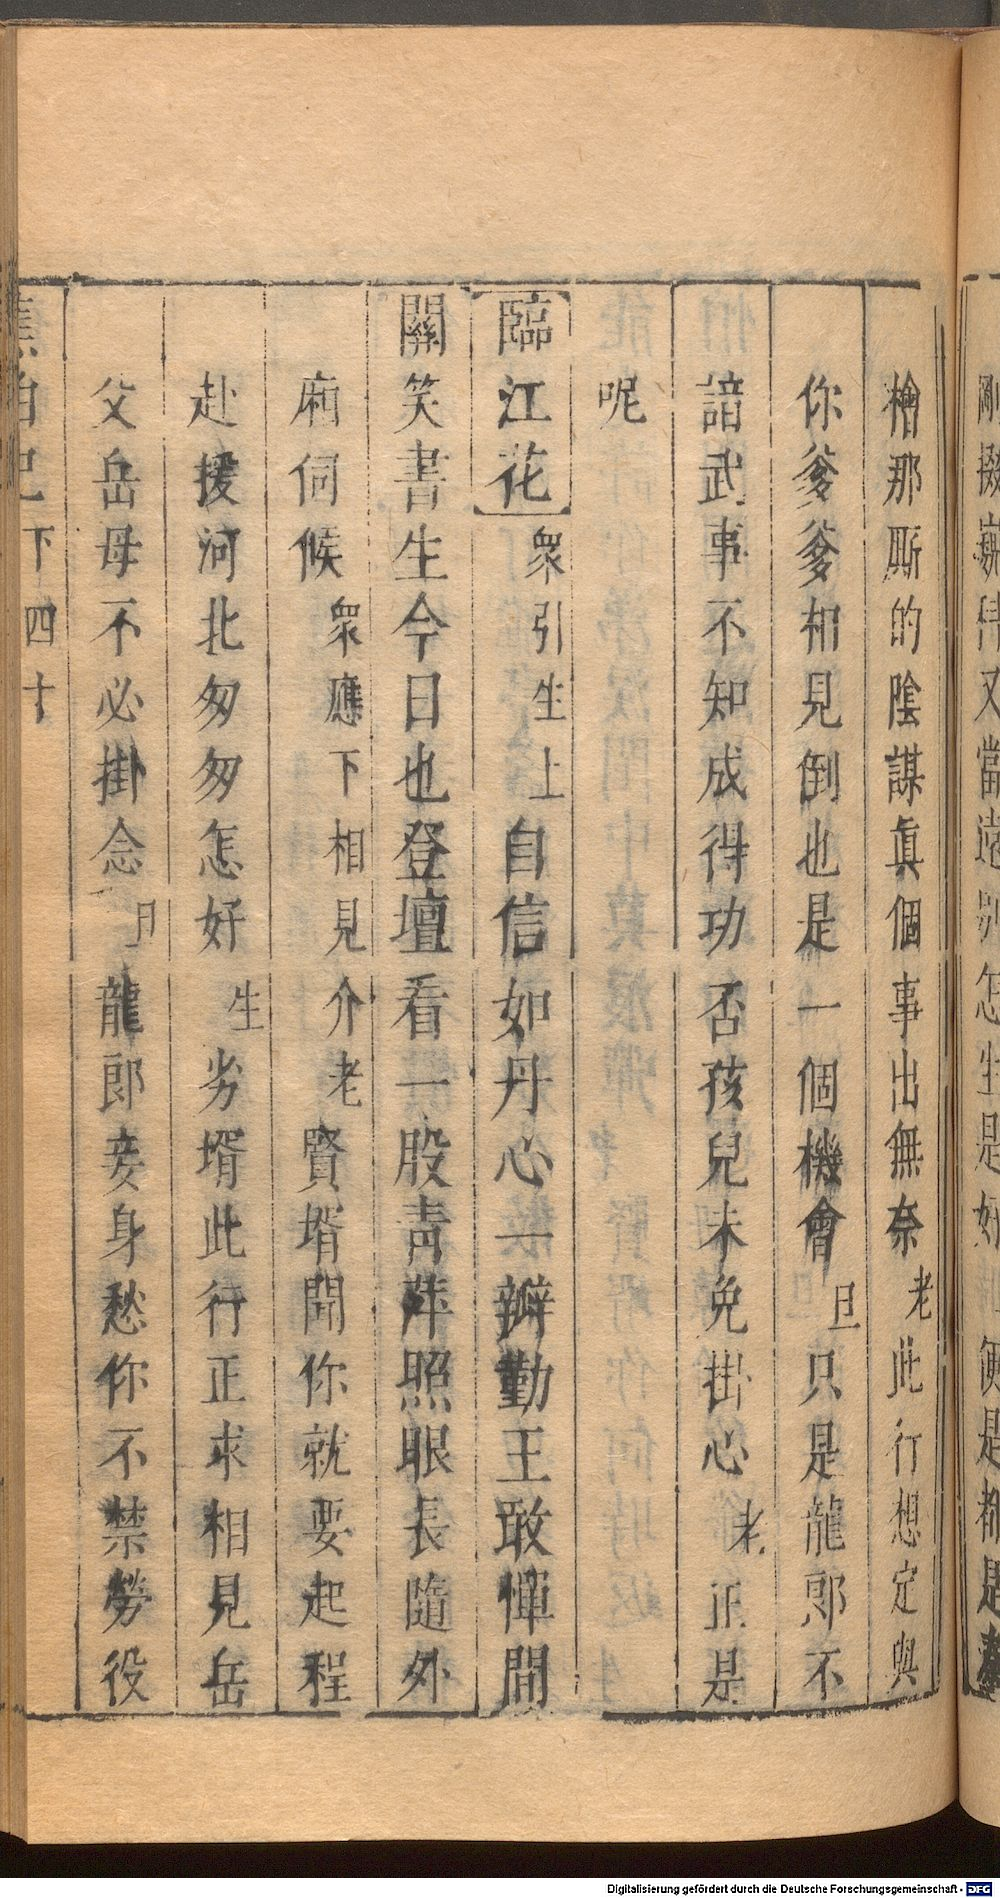 檜那厮的陰謀眞個事出無奈老此行想定與
你爹爹相見倒也是一個機會旦只是龍郎不
諳武事不知成得功否孩兒未免掛心老正是
呢
臨江花衆引生上自信如丹心一瓣勤王敢憚間
關笑書生今日也登壇看一股靑萍照眼長隨外
廂伺候衆應下相見介老賢壻聞你就要起程
赴援河北匆匆怎好生劣壻此行正求相見岳
父岳母不必掛念旦龍郎妾身愁你不禁勞役
下四十
Digitalisierung gefördert durch die Deutsche Forschungsgemeinschaft - DFG